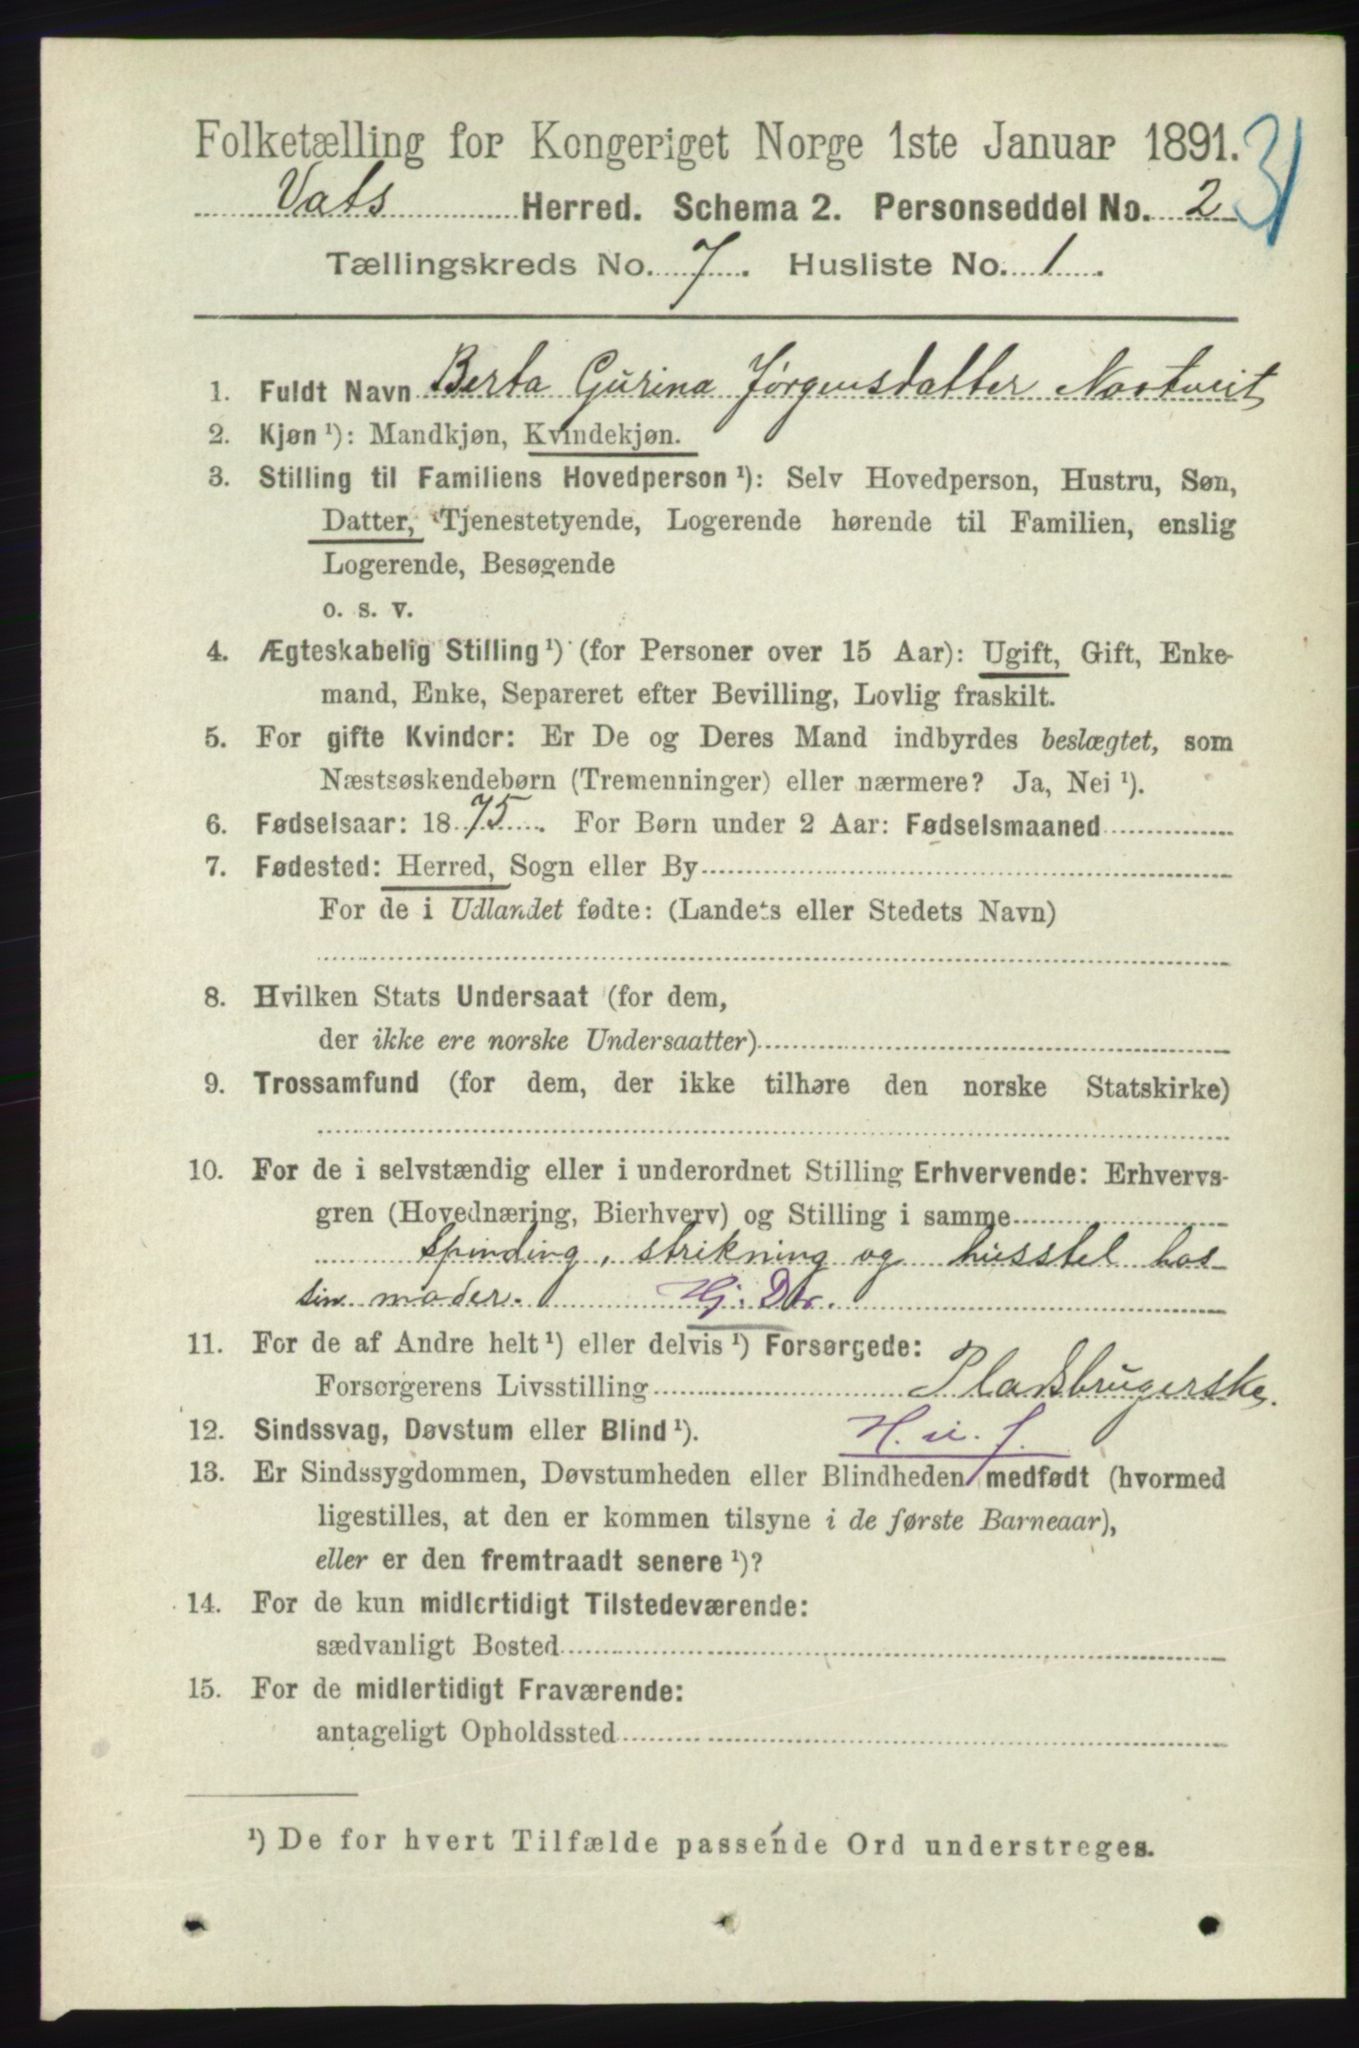 Folketælling for Kongeriget Norge 1ste Januar 1891. 31
Vats Herred. Schema 2. Personseddel No. 2
Tællingskreds No. 7. Husliste No. 1.
1. Fuldt Navn Berta Gurina Jørgensdatter Nortveit
2. Kjøn ¹): Mandkjøn, Kvindekjøn.
3. Stilling til Familiens Hovedperson ¹): Selv Hovedperson, Hustru, Søn,
Datter, Tjenestetyende, Logerende hørende til Familien, enslig
Logerende, Besøgende
o. s. v.
4. Ægteskabelig Stilling ¹) (for Personer over 15 Aar): Ugift, Gift, Enke-
mand, Enke, Separeret efter Bevilling, Lovlig fraskilt.
5. For gifte Kvinder: Er De og Deres Mand indbyrdes beslægtet, som
Næstsøskendebørn (Tremenninger) eller nærmere? Ja, Nei ¹).
6. Fødselsaar: 1875. For Børn under 2 Aar: Fødselsmaaned
7. Fødested: Herred, Sogn eller By
For de i Udlandet fødte: (Landets eller Stedets Navn)
8. Hvilken Stats Undersaat (for dem,
der ikke ere norske Undersaatter)
9. Trossamfund (for dem, der ikke tilhøre den norske Statskirke)
10. For de i selvstændig eller i underordnet Stilling Erhvervende: Erhvervs-
gren (Hovednæring, Bierhverv) og Stilling i samme
Spinding, strikning og husstel hos
sin moder. Hj. Dtr.
11. For de af Andre helt ¹) eller delvis ¹) Forsørgede:
Forsørgerens Livsstilling Pladsbrugerske.
12. Sindssvag, Døvstum eller Blind ¹). H. u. f.
13. Er Sindssygdommen, Døvstumheden eller Blindheden medfødt (hvormed
ligestilles, at den er kommen tilsyne i de første Barneaar),
eller er den fremtraadt senere ¹)?
14. For de kun midlertidigt Tilstedeværende:
sædvanligt Bosted
15. For de midlertidigt Fraværende:
antageligt Opholdssted
¹) De for hvert Tilfælde passende Ord understreges.